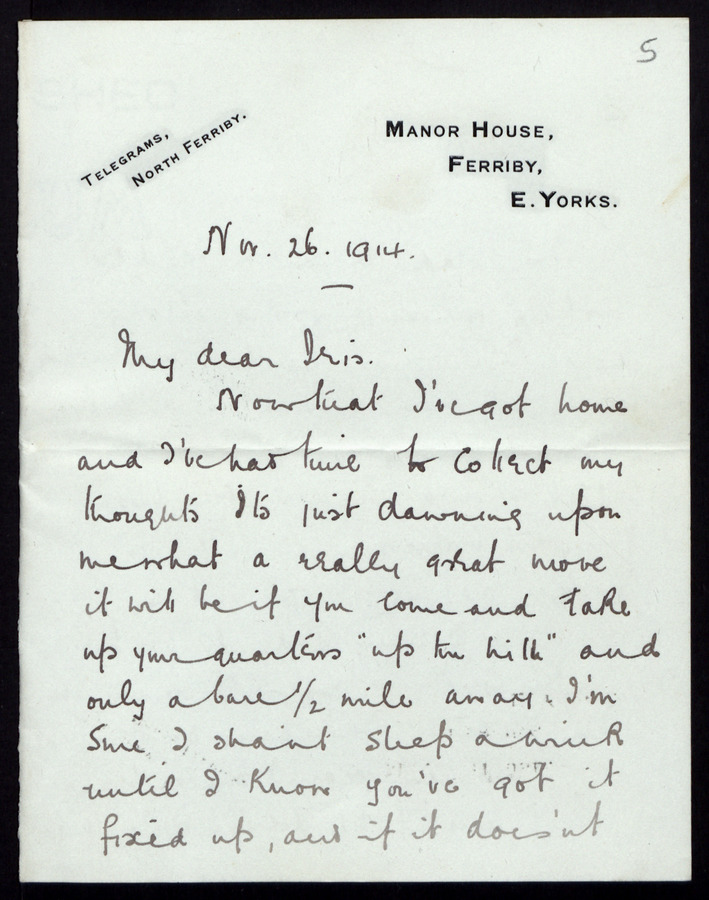 5
TELEGRAMS,
NORTH FERRIBY.
MANOR HOUSE,
FERRIBY,
E. YORKS.
Nov. 26. 1914.
My dear Iris.
Now that I've got home
and I've had time to collect my
thoughts It's just dawning upon
me what a really great move
it will be if you come and take
up your quarters "up the hill" and
only a bare 1/2 mile away. I'm
Sure I sha'nt sleep a wink
until I know you've got it
fixed up, and if it does'nt